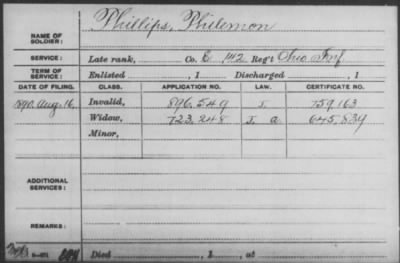 Phillips, Philemon
NAME OF SOLDIER:
SERVICE: Late rank, Co. E 142 Reg't Ohio Inf.
TERM OF SERVICE: Enlisted , 1 Discharged , 1
DATE OF FILING. CLASS. APPLICATION NO. LAW. CERTIFICATE NO.
1890. Aug. 16, Invalid, 896,549 J. 759,163
Widow, 723,248 J. a 645,834
Minor,
ADDITIONAL SERVICES:
REMARKS:
Died , 1 , at